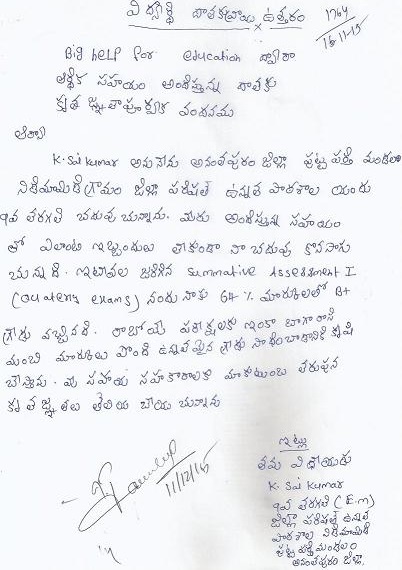 విద్యార్థి దాతకు వ్రాయు ఉత్తరం
1764
16-11-15
Big help For education ద్వారా
ఆర్థిక సహాయం అందిస్తున్న దాతకు
కృతజ్ఞతాపూర్వక వందనము
K. Sai kumar అను నేను అనంతపురం జిల్లా పుట్టపర్తి మండలం
నిడిమామిడి గ్రామం జిల్లా పరిషత్ ఉన్నత పాఠశాల యందు
తరగతి చదువుచున్నాను. మీరు అందిస్తున్న సహాయం
తో ఎలాంటి ఇబ్బందులు లేకుండా నా చదువు కొనసాగు
చున్నది. ఇటీవల జరిగిన Summative Assessment I
(Quaterly exams) నందు నాకు 64 % మార్కులతో B+
గ్రేడు వచ్చినది. రాబోయే పరీక్షలకు ఇంకా బాగా రాసి
మంచి మార్కులు పొంది ఉన్నతమైన గ్రేడు సాధించడానికి కృషి
చేస్తాను. మీ సహాయ సహకారాలకు మా కుటుంబం తరుపున
కృతజ్ఞతలు తెలియ చేయుచున్నాను
ఇట్లు
తమ విధేయుడు
K. Sai Kumar
తరగతి (E.m)
జిల్లా పరిషత్ ఉన్నత
పాఠశాల నిడిమామిడి
పుట్టపర్తి మండలం
అనంతపురం జిల్లా,
11/12/15